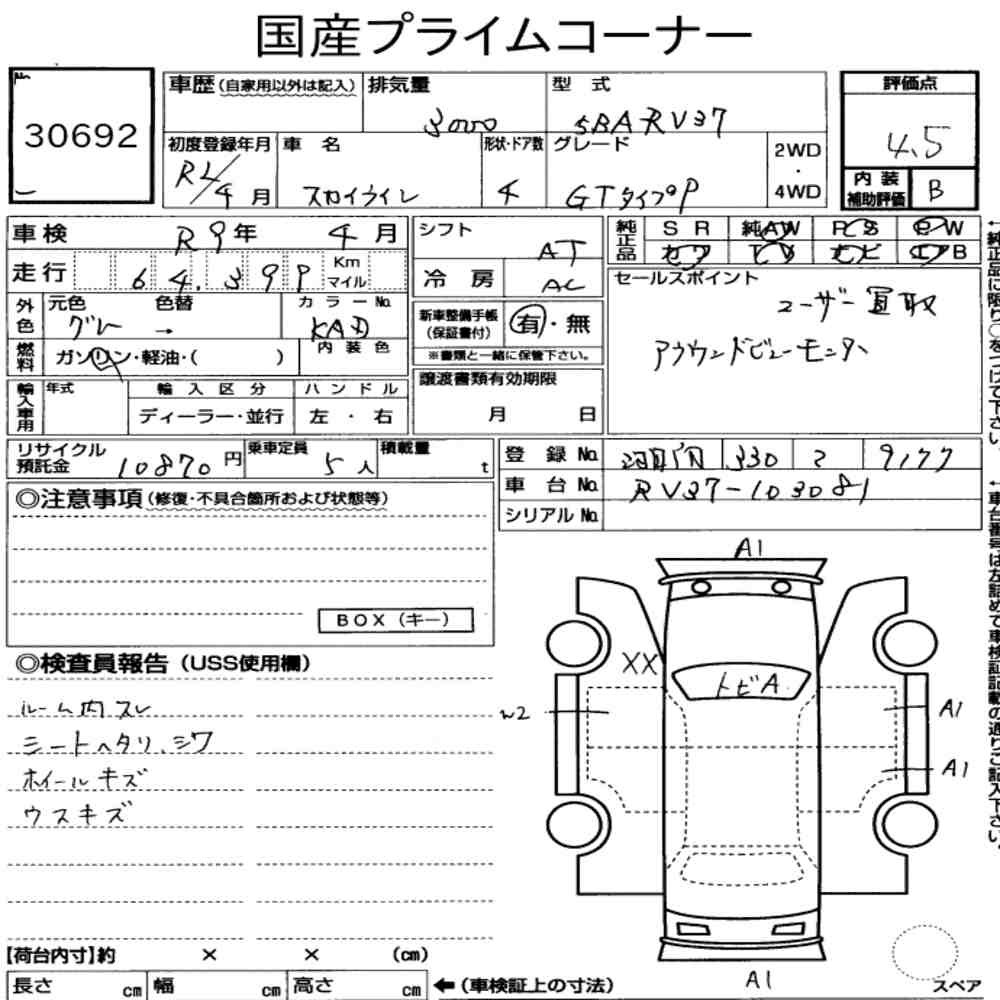 国産プライムコーナー
No 30692
車歴(自家用以外は記入) 排気量 3000 型式 5BA-RV37
評価点 4.5
初度登録年月 R2/4月 車名 スカイライン 形状・ドア数 4 グレード GTタイプP 2WD・4WD
内装補助評価 B
車検 R9年 4月 シフト AT
純正品 SR 純AW PS PW
カワ TV ナビ エアB
走行 64,399 Km マイル 冷房 AC
セールスポイント
ユーザー買取
アラウンドビューモニター
外色 元色 グレー → 色替 カラーNo. KAD
新車整備手帳(保証書付) 有・無
※書類と一緒に保管下さい。
燃料 ガソリン・軽油・( ) 内装色
譲渡書類有効期限 月 日
輸入車用 年式 輸入区分 ディーラー・並行 ハンドル 左・右
←純正品に限り○をつけて下さい。
リサイクル預託金 10870円 乗車定員 5人 積載量 t
登録No. 330 9177
車台No. RV37-103081
シリアルNo.
←車台番号は左詰めで車検証記載の通りご記入下さい。
◎注意事項(修復・不具合箇所および状態等)
BOX(キー)
◎検査員報告(USS使用欄)
ルーム内スレ
シートヘタリ、シワ
ホイールキズ
ウスキズ
A1
XX
トビA
W2
A1
A1
A1
スペア
【荷台内寸】約 × × (cm)
長さ cm 幅 cm 高さ cm ←(車検証上の寸法)